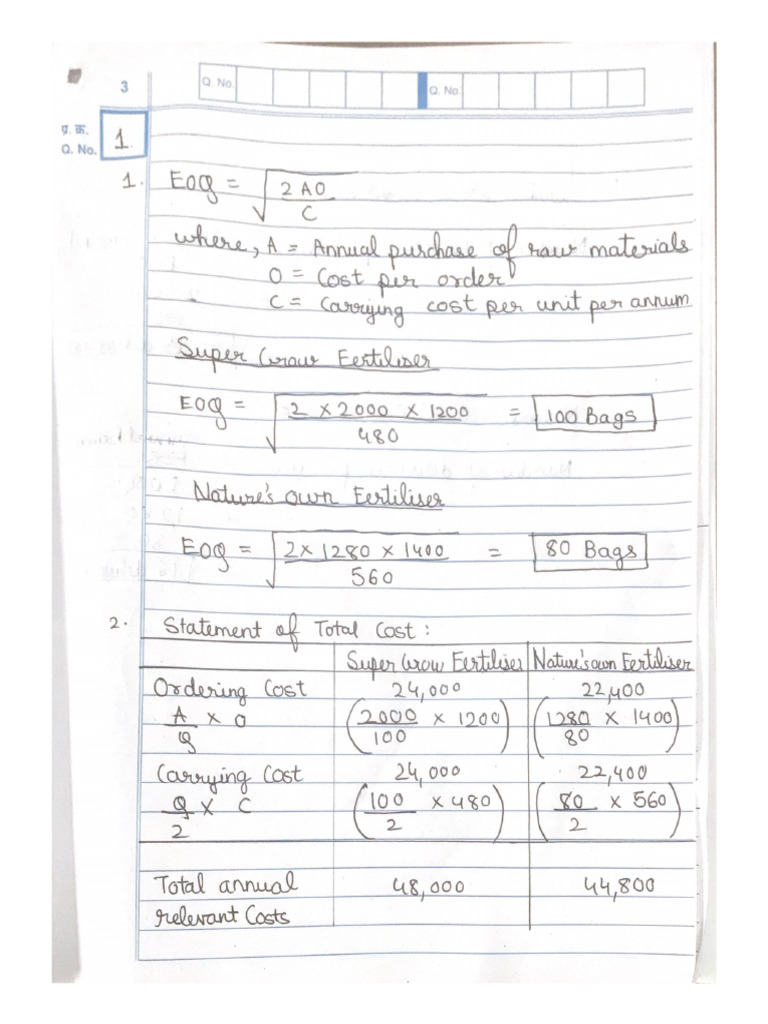 3
Q. No.
Q. No.
प्र. क्र.
Q. No.
1.
1. EOQ = √(2AO / C)
where, A = Annual purchase of raw materials
O = Cost per order
C = Carrying cost per unit per annum
Super Grow Fertiliser
EOQ = √(2 × 2000 × 1200 / 480) = 100 Bags
Nature's own Fertiliser
EOQ = √(2 × 1280 × 1400 / 560) = 80 Bags
2. Statement of Total Cost :
Super Grow Fertiliser Nature's own Fertiliser
Ordering Cost 24,000 22,400
A/Q × O (2000/100 × 1200) (1280/80 × 1400)
Carrying Cost 24,000 22,400
Q/2 × C (100/2 × 480) (80/2 × 560)
Total annual 48,000 44,800
relevant Costs